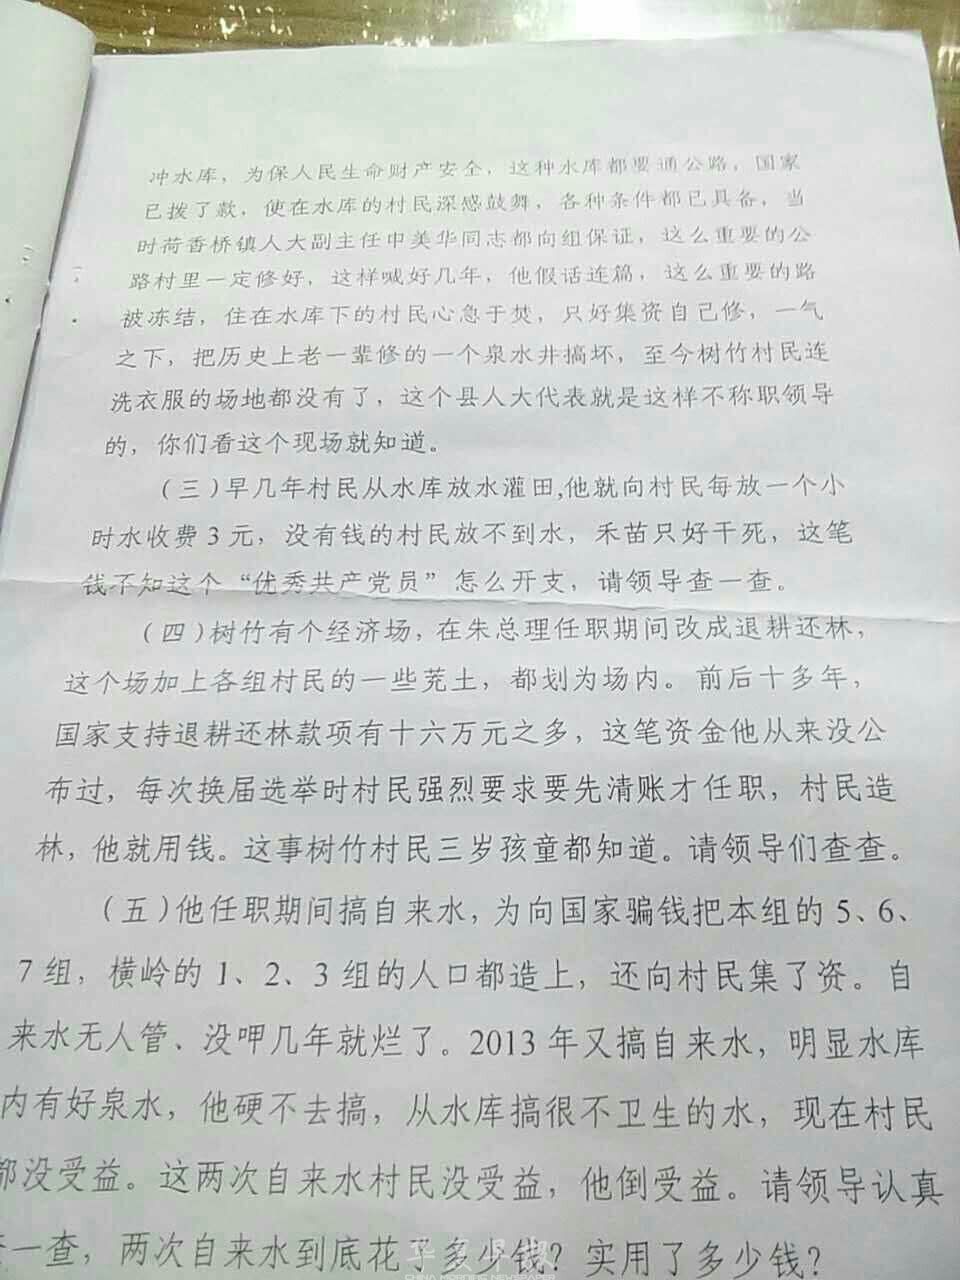 冲水库，为保人民生命财产安全，这种水库都要通公路，国家
已拨了款，使在水库的村民深感鼓舞，各种条件都已具备，当
时荷香桥镇人大副主任申美华同志都向组保证，这么重要的公
路村里一定修好，这样喊好几年，他假话连篇，这么重要的路
被冻结，住在水库下的村民心急于焚，只好集资自己修，一气
之下，把历史上老一辈修的一个泉水井搞坏，至今树竹村民连
洗衣服的场地都没有了，这个县人大代表就是这样不称职领导
的，你们看这个现场就知道。
（三）早几年村民从水库放水灌田,他就向村民每放一个小
时水收费3元，没有钱的村民放不到水，禾苗只好干死，这笔
钱不知这个“优秀共产党员”怎么开支，请领导查一查。
（四）树竹有个经济场，在朱总理任职期间改成退耕还林，
这个场加上各组村民的一些荒土，都划为场内。前后十多年，
国家支持退耕还林款项有十六万元之多，这笔资金他从来没公
布过，每次换届选举时村民强烈要求要先清账才任职，村民造
林，他就用钱。这事树竹村民三岁孩童都知道。请领导们查查。
（五）他任职期间搞自来水，为向国家骗钱把本组的5、6、
7组，横岭的1、2、3组的人口都造上，还向村民集了资。自
来水无人管、没呷几年就烂了。2013年又搞自来水，明显水库
内有好泉水，他硬不去搞，从水库搞很不卫生的水，现在村民
都没受益。这两次自来水村民没受益，他倒受益。请领导认真
一查，两次自来水到底花了多少钱？实用了多少钱？